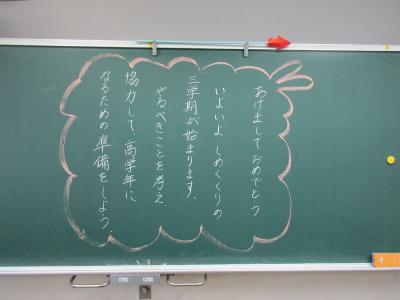 あけまして おめでとう
いよいよ しめくくりの
三学期が始まります。
やるべきことを考え
協力して、高学年に
なるための準備をしよう。